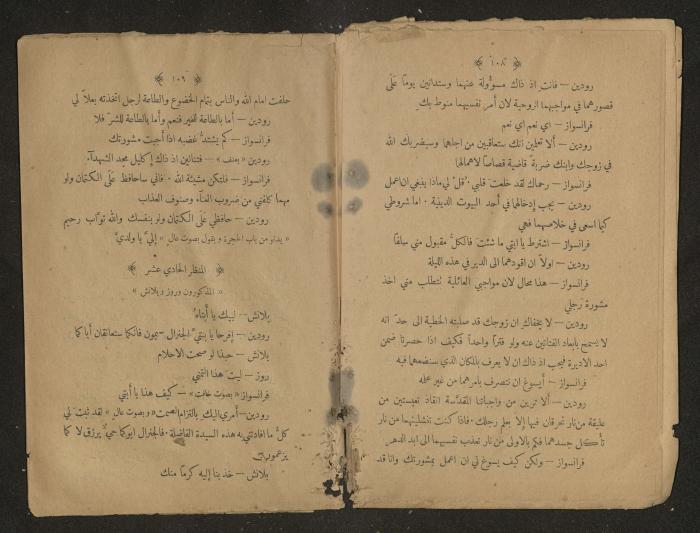 ﴿ ١٠٨ ﴾
رودين – فانت اذ ذاك مسؤولة عنهما وستدانين يوماً عَلَى
قصورهما في مواجبهما الزوجية لان أمر نفسيهما منوط بك
فرانسواز – اي نعم اي نعم
رودين – ألا تعلمين انك ستعاقبين من اجلهما وسيضربك الله
في زوجك وابنك ضربة قاضية قصاصاً لاهمالها
فرانسواز – رحماك لقد خلعت قلبي · قل لي ماذا ينبغي ان اعمل
رودين – يجب إدخالهما في أحد البيوت الدينية · اما شروطي
كيما اسعى في خلاصهما فهي
فرانسواز – اشترط يا ابتي ما شئت فالكلُّ مقبول مني سلفاً
رودين – اولاً ان اقودهما الى الدير في هذه الليلة
فرانسواز – هذا محال لان مواجبي العائلية تتطلب مني اخذ
مشورة رجلي
رودين – لا يخفاك ان زوجك قد صلبته الخطية الى حد انه
لا يسمح بابعاد الفتاتين عنه ولو فتراً واحداً فكيف اذا حصرتا ضمن
احد الاديرة فيجب اذ ذاك ان لا يعرف بالمكان الذي سنضعهما فيه
فرانسواز – أيسوغ ان نتصرف بأمرهما من غير علمه
رودين – ألا ترين من واجباتنا المقدسة انقاذ تعيستين من
عليقة من نار تحرقان فيها إلا بعلم رجلك · فاذا كنت تنشلينهما من نار
تأكل جسدهما فكم بالاولى من نار تعذب نفسيهما الى ابد الدهر
فرانسواز – ولكن كيف يسوغ لي ان اعمل بمشورتك وانا قد
﴿ ١٠٩ ﴾
حلفت امام الله والناس بتمام الخضوع والطاعة لرجل اتخذته بعلاً لي
رودين – أما بالطاعة للخير فنعم وأما بالطاعة للشرّ فلا
فرانسواز – كم يشتدُّ غضبه اذا أجبت مشورتك
رودين « بعنف » – فتنالين اذ ذاك إكليل مجد الشهدآء
فرانسواز – فلتكن مشيئة الله · فاني ساحافظ عَلَى الكتمان ولو
مهما كلفني من ضروب العنآء وصنوف العذاب
رودين – حافظي عَلَى الكتمان ولو بنفسك والله توّاب رحيم
« يدنو من باب الحجرة و يقول بصوت عال » إليَّ يا ولديَّ
﴿ المنظر الحادي عشر ﴾
« المذكورون وروز وبلانش »
بلانش – لبيك يا أبتاه
رودين – إفرحا يا بنتيَّ الجنرال سيمون فانكما ستعانقان أباكما
بلانش – حبذا لو صحت الاحلام
روز – ليت هذا التمني
فرانسواز « بصوت خافت » – كيف هذا يا أبتي
رودين – أمري اليك بالتزام الصمت « وبصوت عال » لقد ثبت لي
كلُّ ما افادتني به هذه السيدة الفاضلة · فالجنرال ابوكما حيٌّ يرزق لا كما
يزعمون
بلانش – خذ بنا إليه كرماً منك